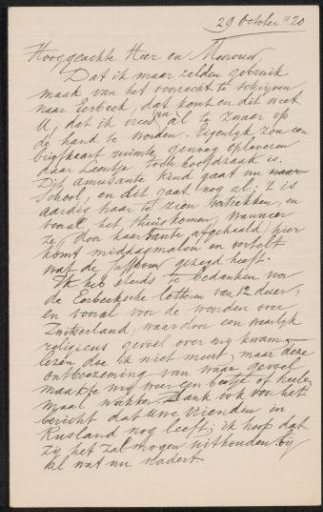 29 October '20
Hooggeachte Heer en Mevrouw,
Dat ik maar zelden gebruik
maak van het voorrecht te schrijven
naar Eerbeek, dat komt en dit weet
U, dat ik vrees U al te zwaar op
de hand te worden. Eigenlijk zou een
briefkaart ruimte genoeg opleveren
daar Leentje toch hoofdzaak is.
Dit amusante kind gaat nu naar
School, en dit gaat nog al; 't is
aardig haar te zien vertrekken, en
vooral het thuiskomen, wanneer
ze, door haar tante afgehaald, hier
komt middagmalen en vertelt
wat de juffrouw gezegd heeft.
Ik heb steeds te bedanken voor
de Eerbeeksche letteren van 12 dezer;
en vooral voor de woorden over
Zwitserland, waardoor een waarlijk
religieus gevoel over mij kwam.
lezen doe ik niet meer, maar deze
ontboezeming van waar gevoel
maakte mij weer een beetje of heele-
maal wakker. Dank ook voor het
bericht dat uwe vrienden in
Rusland nog leeft; ik hoop dat
zij het zal mogen uithouden bij
al wat nu nadert.